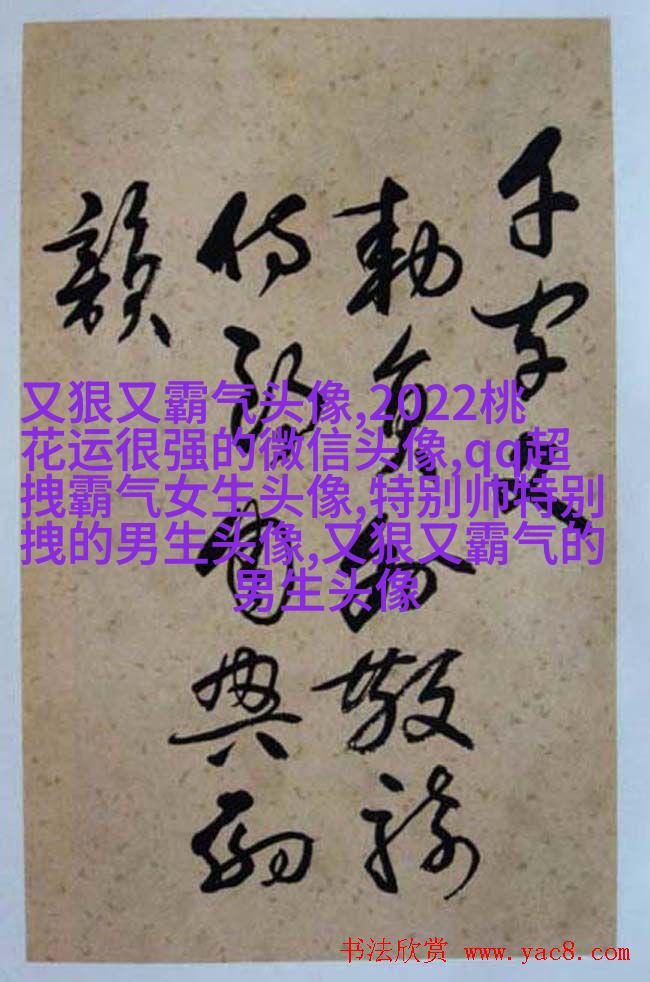 千字文
勅員外散騎
侍郎周興嗣
韻
又狠又霸气头像,2022桃
花运很强的微信头像,qq超
拽霸气女生头像,特别帅特别
拽的男生头像,又狠又霸气的
男生头像
书法欣赏 www.yac8.com